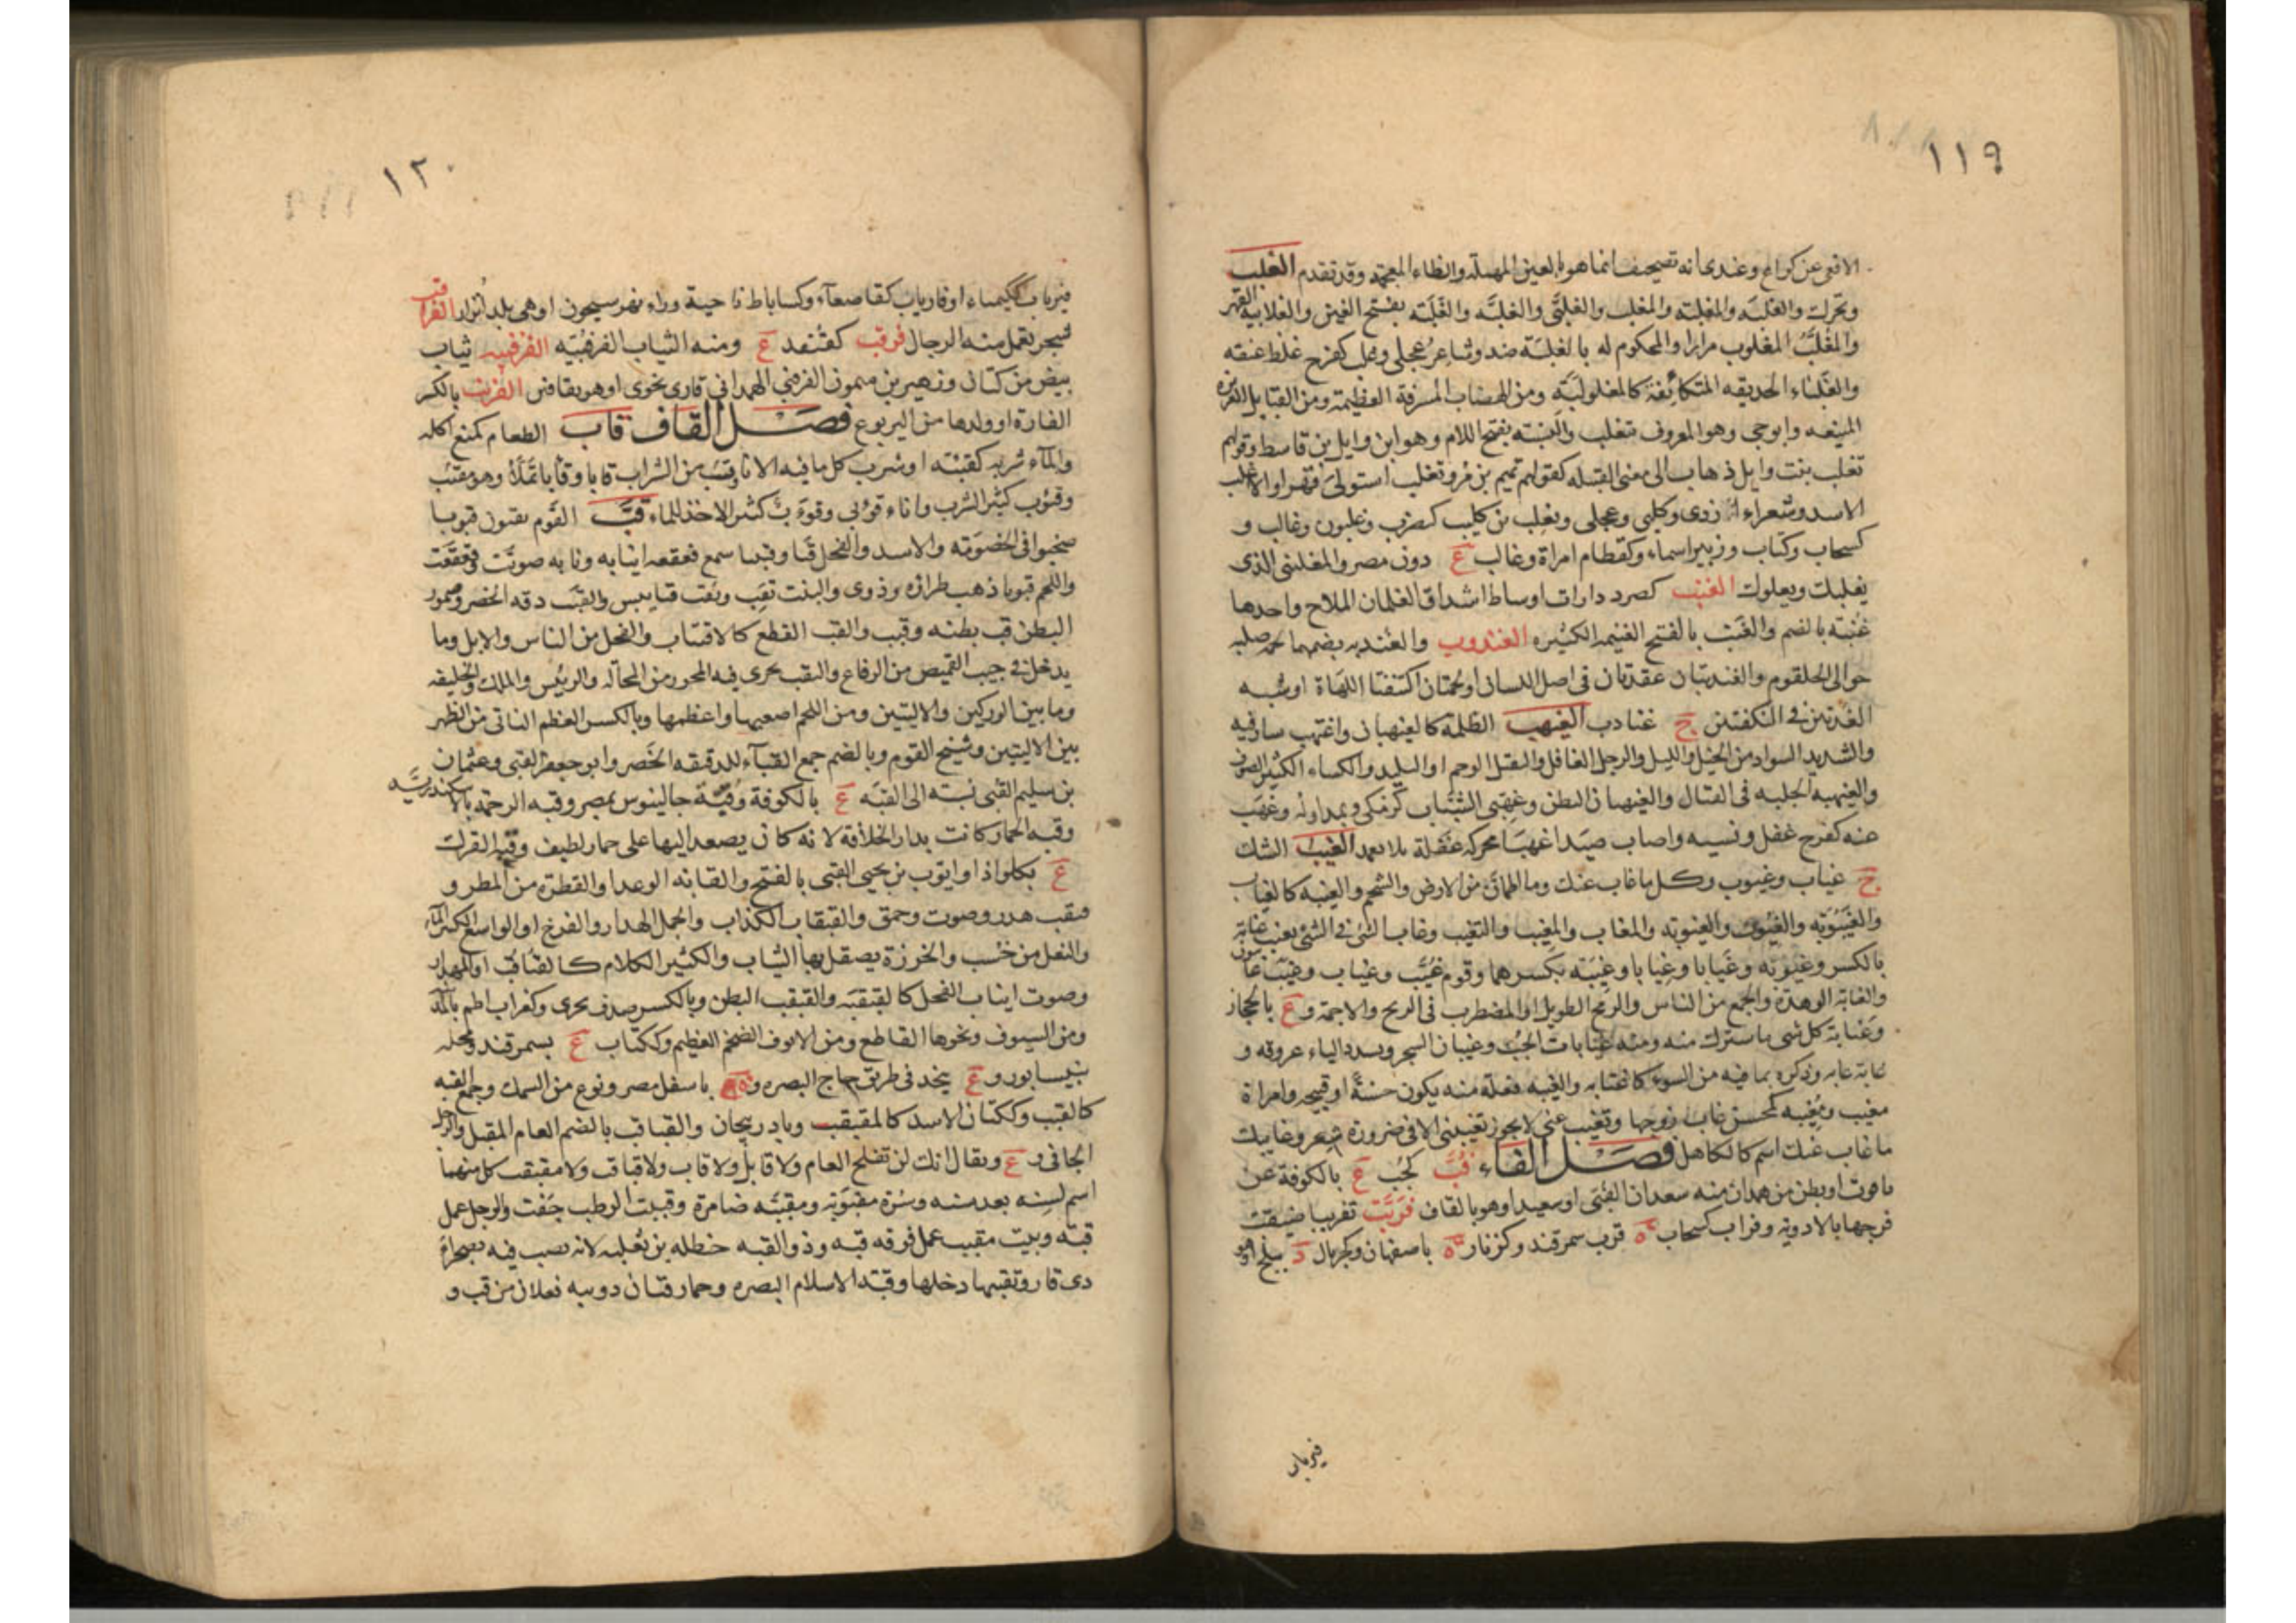 ١١٩
الافعى عن كراع وعندى انه تصحيف انما هو بالعين المهملة والظاء المعجمة وقد تقدم الغلب
وتحرك والغلبة والمغلبة والمغلب والغلبّى والغلبّة والغَلُبّة بفتح الغين والغلابية القهر
والمغلَّبُ المغلوب مرارا والمحكوم له بالغلبة ضد وشاعر عجلى وغلب كفرح غلظ عنقه
والغَلْباء الحديقه المتكاثفة كالمغلولبة ومن الهضاب المشرفة العظيمة ومن القبايل العزيزة
المنيعه وابوحى وهو المعروف بتغلب والنسبته بفتح اللام وهو ابن وايل بن قاسط وقولهم
تغلب بنت وايل ذهاب الى معنى القبيله كقولهم تميم بن مُر وتغلب استولى قهرا والاغلب
الاسد وشعراء ازدى وكلبى وعجلى وتغلب بن كليب كيضرب وغلبون وغالب و
كسحاب وكتاب وزبير اسماء وكقطام امراة وغالب ع دون مصر والمغلنبى الذى
يغلبك ويعلوك الغنب كصرد دارات اوساط اشداق الغلمان الملاح واحدها
غنبة بالضم والغَنب بالفتح الغنيمة الكثيره الغندوب والغندبه بضمهما لحمه صلبه
حوالى الحلقوم والغندبتان عقدتان فى اصل اللسان او لحمتان اكتنفتا اللهاة او شبه
الغدتين فى النكفتين ج غنادب الغيهب الظلمة كالغيهبان واغتهب سار فيه
والشديد السواد من الخيل والليل والرجل الغافل والثقيل الوخم او البليد والكساء الكثير الصوف
والغيهبه الجلبه فى القتال والغيهبان البطن وغهبى الشباب كزمكى ويمد اوله وغهب
عنه كفرح غفل ونسيه واصاب صيدا غهبا محركة غفلة بلا تعمد الغيب الشك
ج غياب وغيوب وكل ما غاب عنك وما اطمان من الارض والشحم والغيبه كالغياب
والغيبوبة والغيوب والغيوبة والمغاب والمغيب والتغيب وغاب الشئ فى الشئ يغيب غيابة
بالكسر وغيوبة وغَيابا وغِيابا وغيبة بكسرهما وقوم غُيَّب وغياب وغيب غائبون
والغابة الوهدة والجمع من الناس والرمح الطويل او المضطرب فى الريح والاجمة وع بالحجاز
وغيابة كل شى ما سترك منه ومنه غيابات الجُب وغيبان الشجر ويشدد الياء عروقه و
غابة عابه وذكره بما فيه من السوء كاغتابه والغيبه فعلة منه يكون حسنة او قبيحه وامراة
مغيب ومغيبه كمحسن غاب زوجها وتغيب عنى لا يجوز تغيبنى الا فى ضرورة شعر وغايبك
ما غاب عنك اسم كالكاهل فصل الفاء فُبّ كجُب ع بالكوفة عن
ياقوت او بطن من همدان منه سعدان الفبى او سعيد او هو بالقاف فَرَّبَت تفريبا ضيقت
فرجها بالادوية وفراب كسحاب ة قرب سمرقند وكزنار ة باصفهان وكجريال د ببلخ او هو
فيرباب
١٢٠
فيرباب ككيمياء او فارياب كقاصعاء وكساباط ناحية وراء نهر سيحون او هى بلد اُترار الفرا
قب
شجر تعمل منه الرحال فرقب كقنفد ع ومنه الثياب الفرقبية الفرقبيه ثياب
بيض من كتان وزهير بن ميمون الفرقبى الهمدانى قارى نحوى او هو بقافين الفرنب بالكسر
الفارة او ولدها من اليربوع فصل القاف قاب الطعام كمنع اكله
والماء شربه كقئبه او شرب كل ما فيه الاناء وقئب من الشراب قابا وقأبا تملّأ وهو مقئب
وقؤوب كثير الشرب واناء قوابى وقوأب كثير الاخذ للماء قبّ القوم يقبون قبوبا
صخبوا فى الخصومة والاسد والفحل قبا وقبيبا سمع قعقعه انيابه ونابه صوتت وقعقعت
واللحم قبوبا ذهب طراؤه وذوى والنبت يقب ويقب قبا يبس والقبب دقه الخصر وضمور
البطن قب بطنه وقبب والقب القطع كالاقتباب والفحل من الناس والابل وما
يدخل فى جيب القميص من الرقاع والثقب يجرى فيه المحور من المحالة والرئيس والملك والخليفه
وما بين الوركين والاليتين ومن اللجم اصعبها واعظمها وبالكسر العظم الناتى من الظهر
بين الاليتين وشيخ القوم وبالضم جمع القباء للدقيقه الخصر وابو جعفر القبى وعثمان
بن سليم القبى نسبة الى القبه ع بالكوفة وقبة جالينوس بمصر وقبه الرحمة بالاسكندرية
وقبه الحمار كانت بدار الخلافة لانه كان يصعد اليها على حمار لطيف وقبه الفرك
ع بكلواذا وايوب بن يحيى القبى بالفتح والقابه الوعد والقطرة من المطر و
قبقب هدر وصوت وحمق والقبقاب الكذاب والجمل الهدار والفرج او الواسع الكثير الماء
والنعل من خشب والخرزة يصقل بها الثياب والكثير الكلام كالقباقب او المهدار
وصوت انياب الفحل كالقبقبة والقبقب البطن وبالكسر صدف بحرى وكغراب اطم بالمدينة
ومن السيوف ونحوها القاطع ومن الانوف الضخم العظيم وككتاب ع بسمرقند ومحله
بنيسابور وع بنجد فى طريق حاج البصره وة باسفل مصر ونوع من السمك وجمع القبه
كالقبب وككتان الاسد كالمقبقب وباذربيجان والقباقب بالضم العام المقبل والرجل
الجافى و ع ويقال انك لن تفلح العام ولا قابل ولا قاب ولا قباقب ولا مقبقب كل منهما
اسم لسنه بعد سنه وسُرة مقبوبة ومقببّه ضامرة وقببت الرطب جفت والرجل عمل
قبه وبيت مقبب عمل فوقه قبه وذو القبه حنظله بن ثعلبه لانه نصب قبه بصحراء
ذى قار وتقببها دخلها وقبة الاسلام البصره وحمار قبان دويبه فعلان من قب و